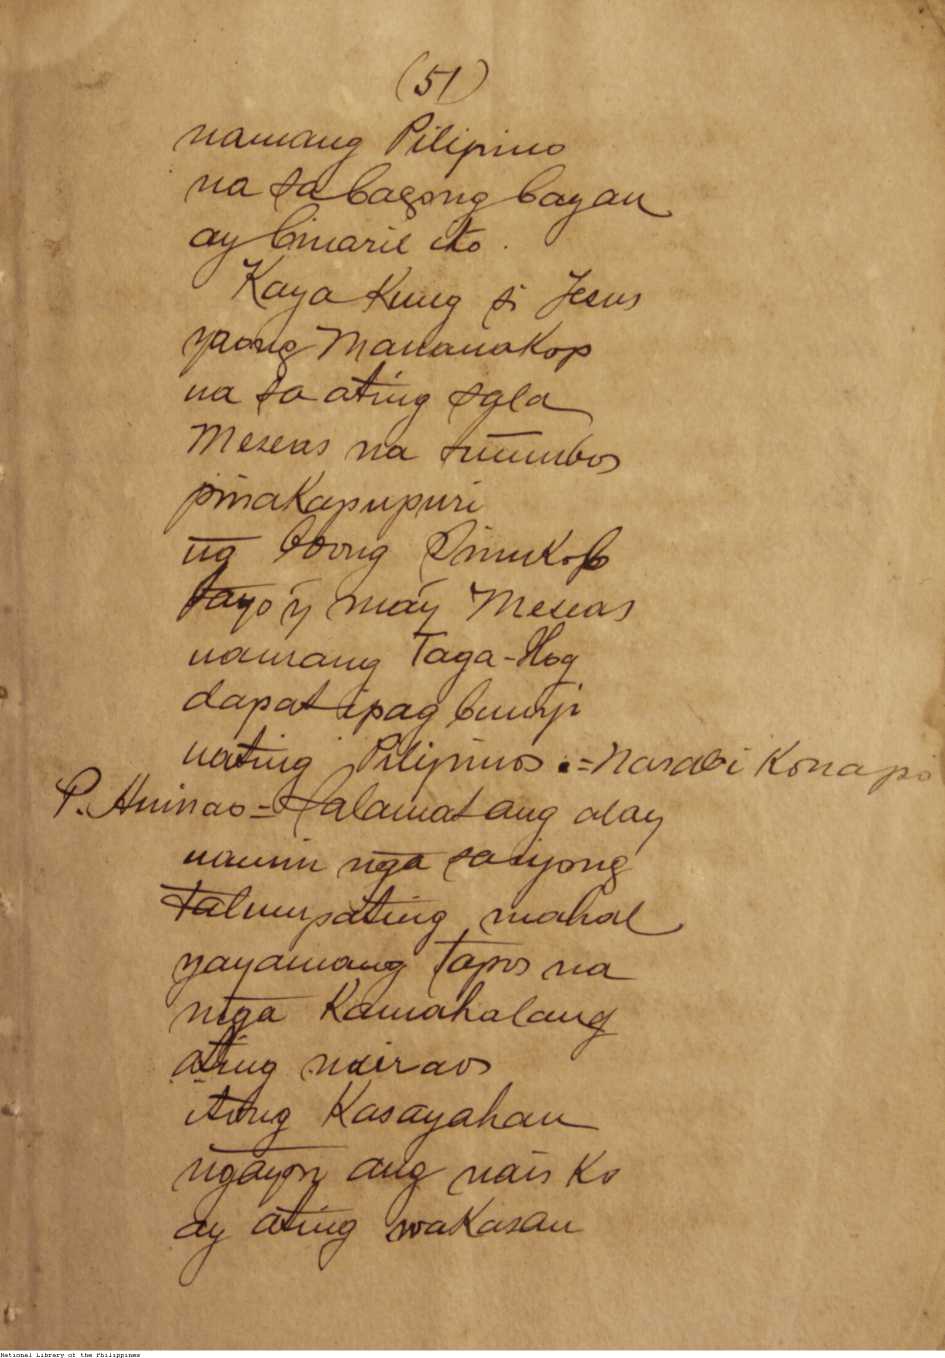 (51)
namang Pilipino
na sa bagong bayan
ay binaril ito.
Kaya Kung si Jesus
yaong Mananakop
na sa ating sala
Mesias na tumubos
pinakapupuri
ng boong Sinukob
tayo'y may Mesias
namang Taga-Ilog
dapat ipag bunyi
nating Pilipinos.=Nasabi Ko na po
P. Aninao=Salamat ang alay
namin nga sa iyong
talumpating mahal
yayamang tapos na
nga Kamahalang
ating nairaos
itong Kasayahan
ngayon ang nais Ko
ay ating waKasan
National Library of the Philippines